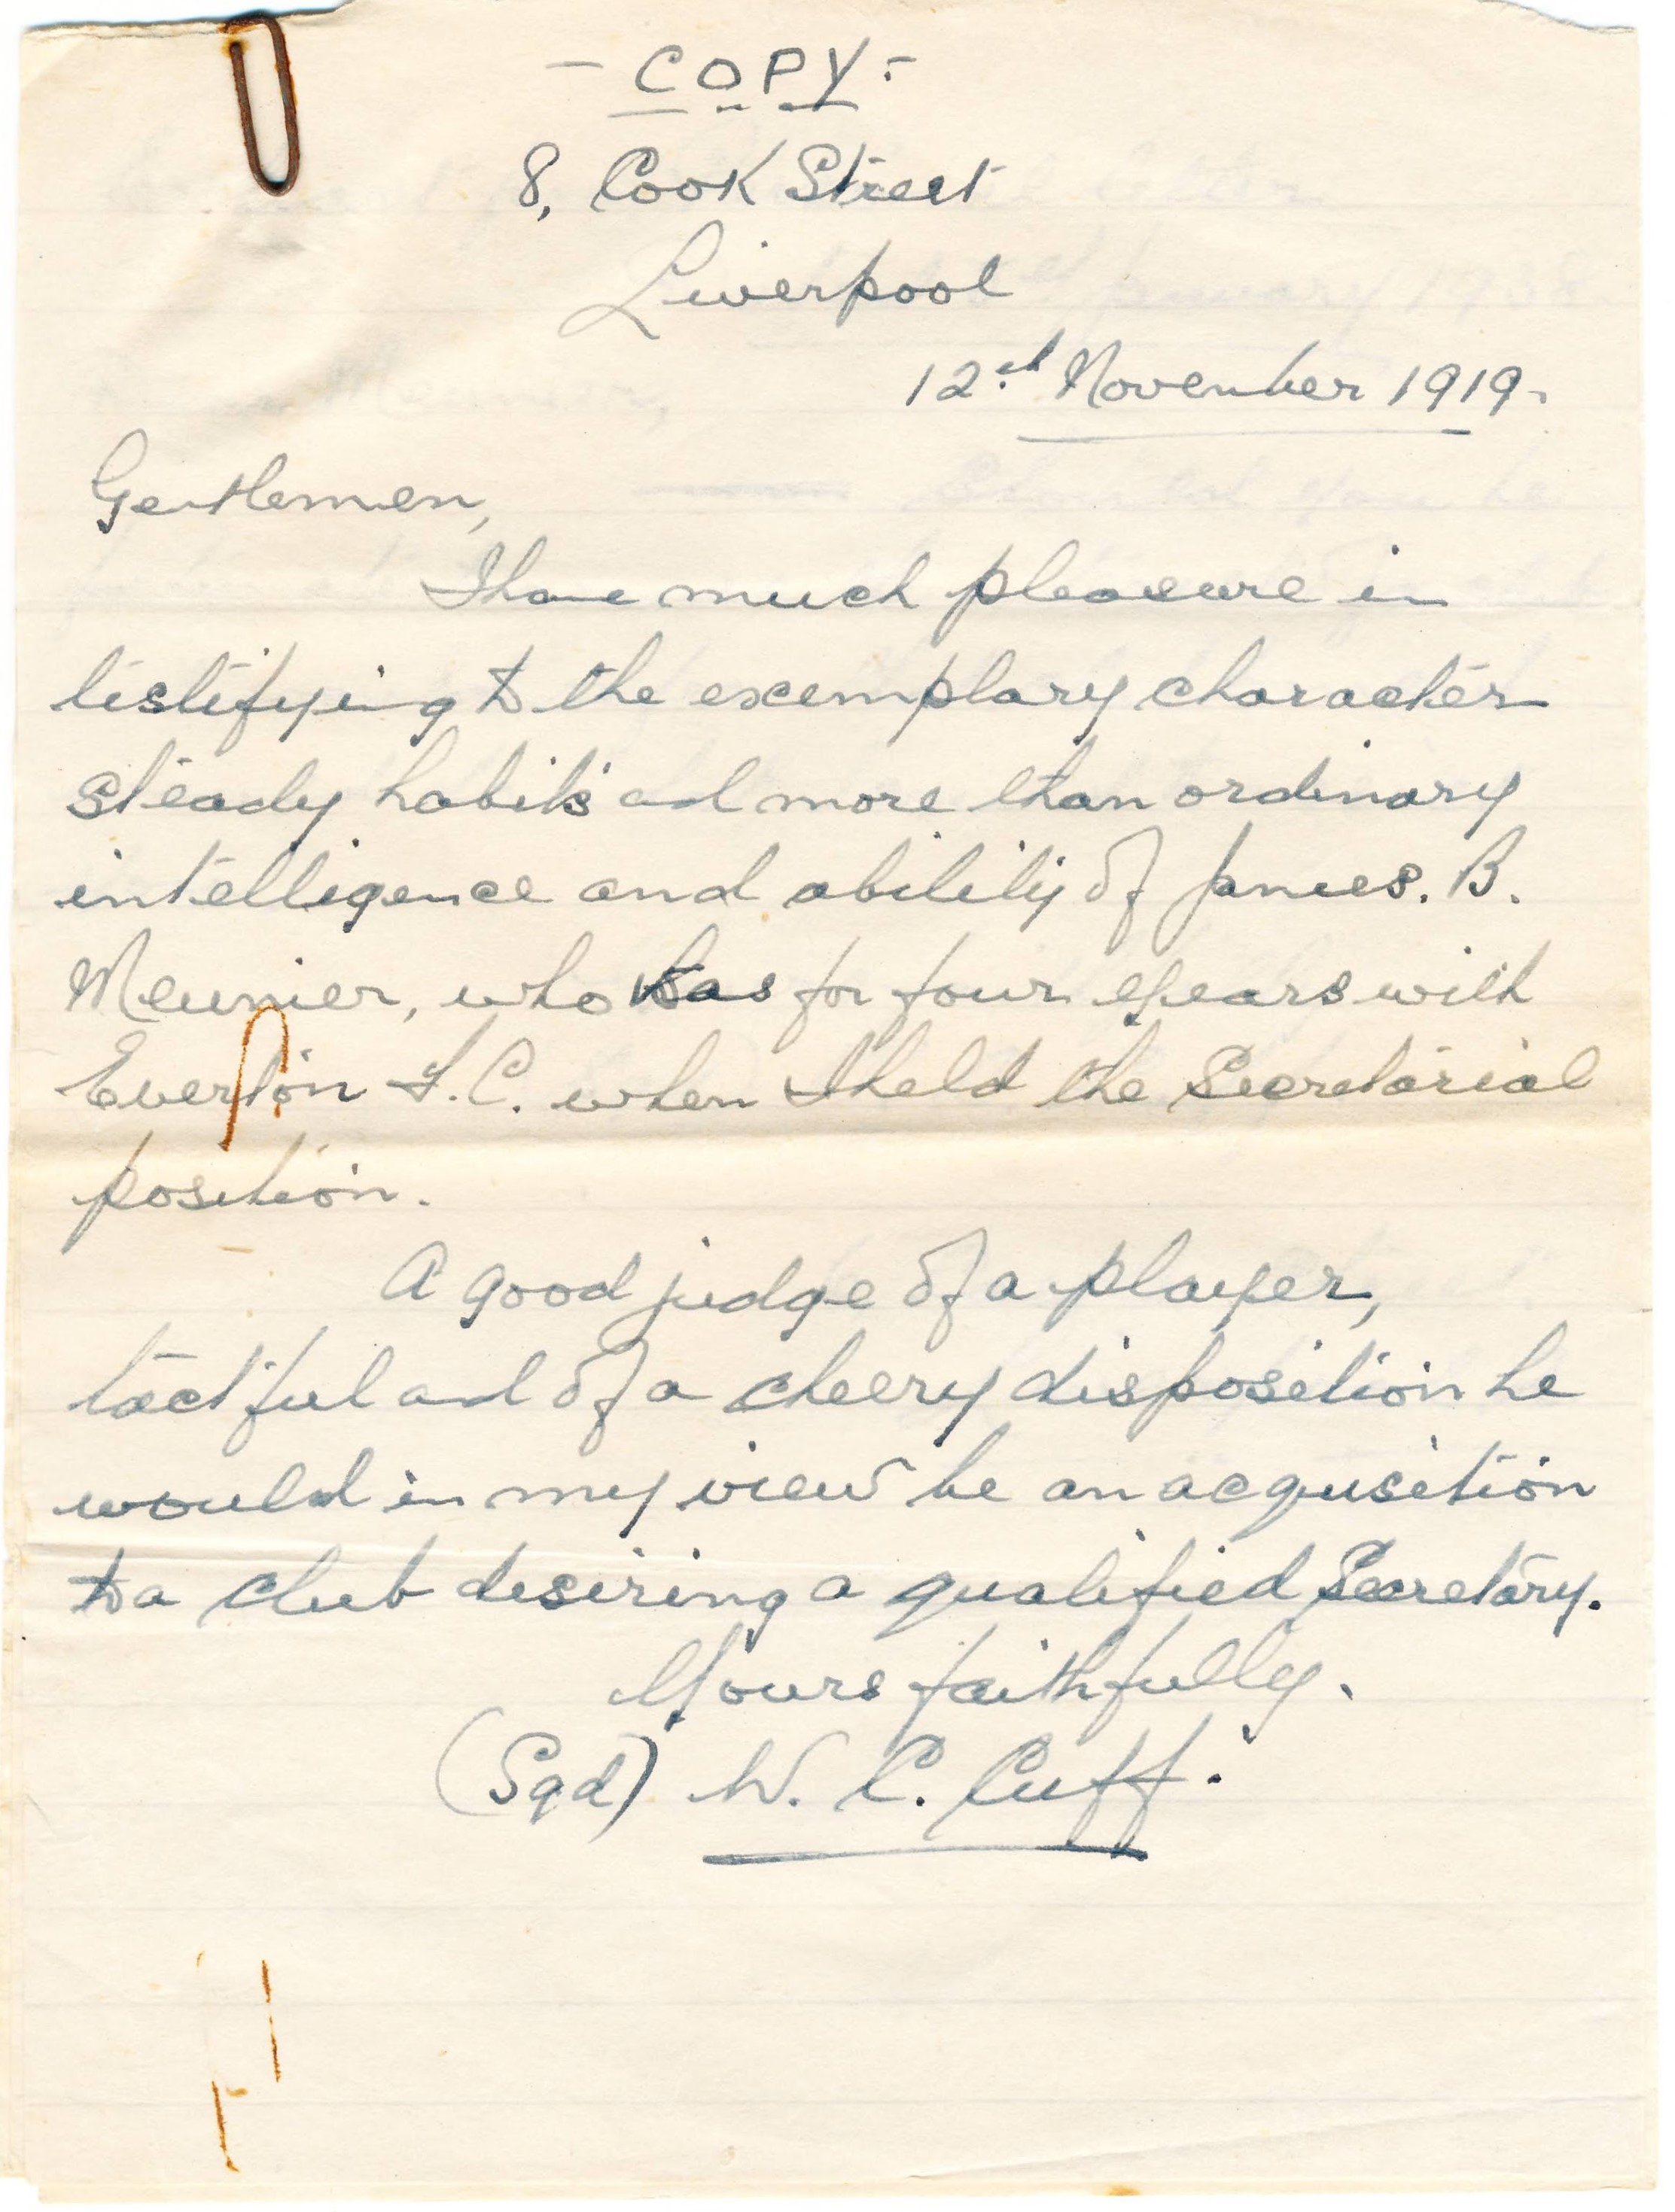 - COPY -
8, Cook Street
Liverpool
12th November 1919.
Gentlemen,
I have much pleasure in
testifying to the exemplary character
steady habits and more than ordinary
intelligence and ability of James. B.
Meunier, who was for four years with
Everton F.C. when I held the Secretarial
position.
A good judge of a player,
tactful and of a cheery disposition he
would in my view be an acquisition
to a club desiring a qualified Secretary.
Yours faithfully.
(Sgd) W. C. Cuff.